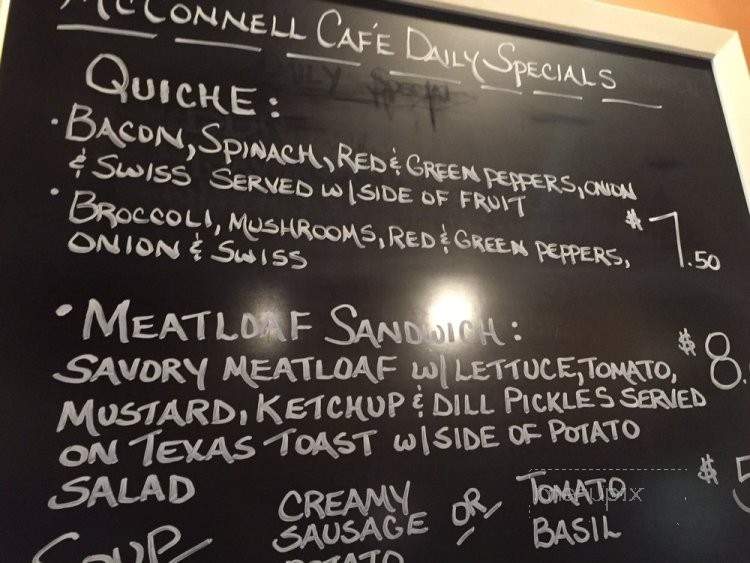 McConnell Café Daily Specials
Quiche:
• Bacon, Spinach, Red & Green Peppers, Onion
& Swiss Served w/ Side of Fruit
• Broccoli, Mushrooms, Red & Green Peppers,
Onion & Swiss
$7.50
• Meatloaf Sandwich:
$8.
Savory Meatloaf w/ Lettuce, Tomato,
Mustard, Ketchup & Dill Pickles Served
on Texas Toast w/ Side of Potato
Salad
$5
Soup
Creamy
Sausage
Potato
or
Tomato
Basil